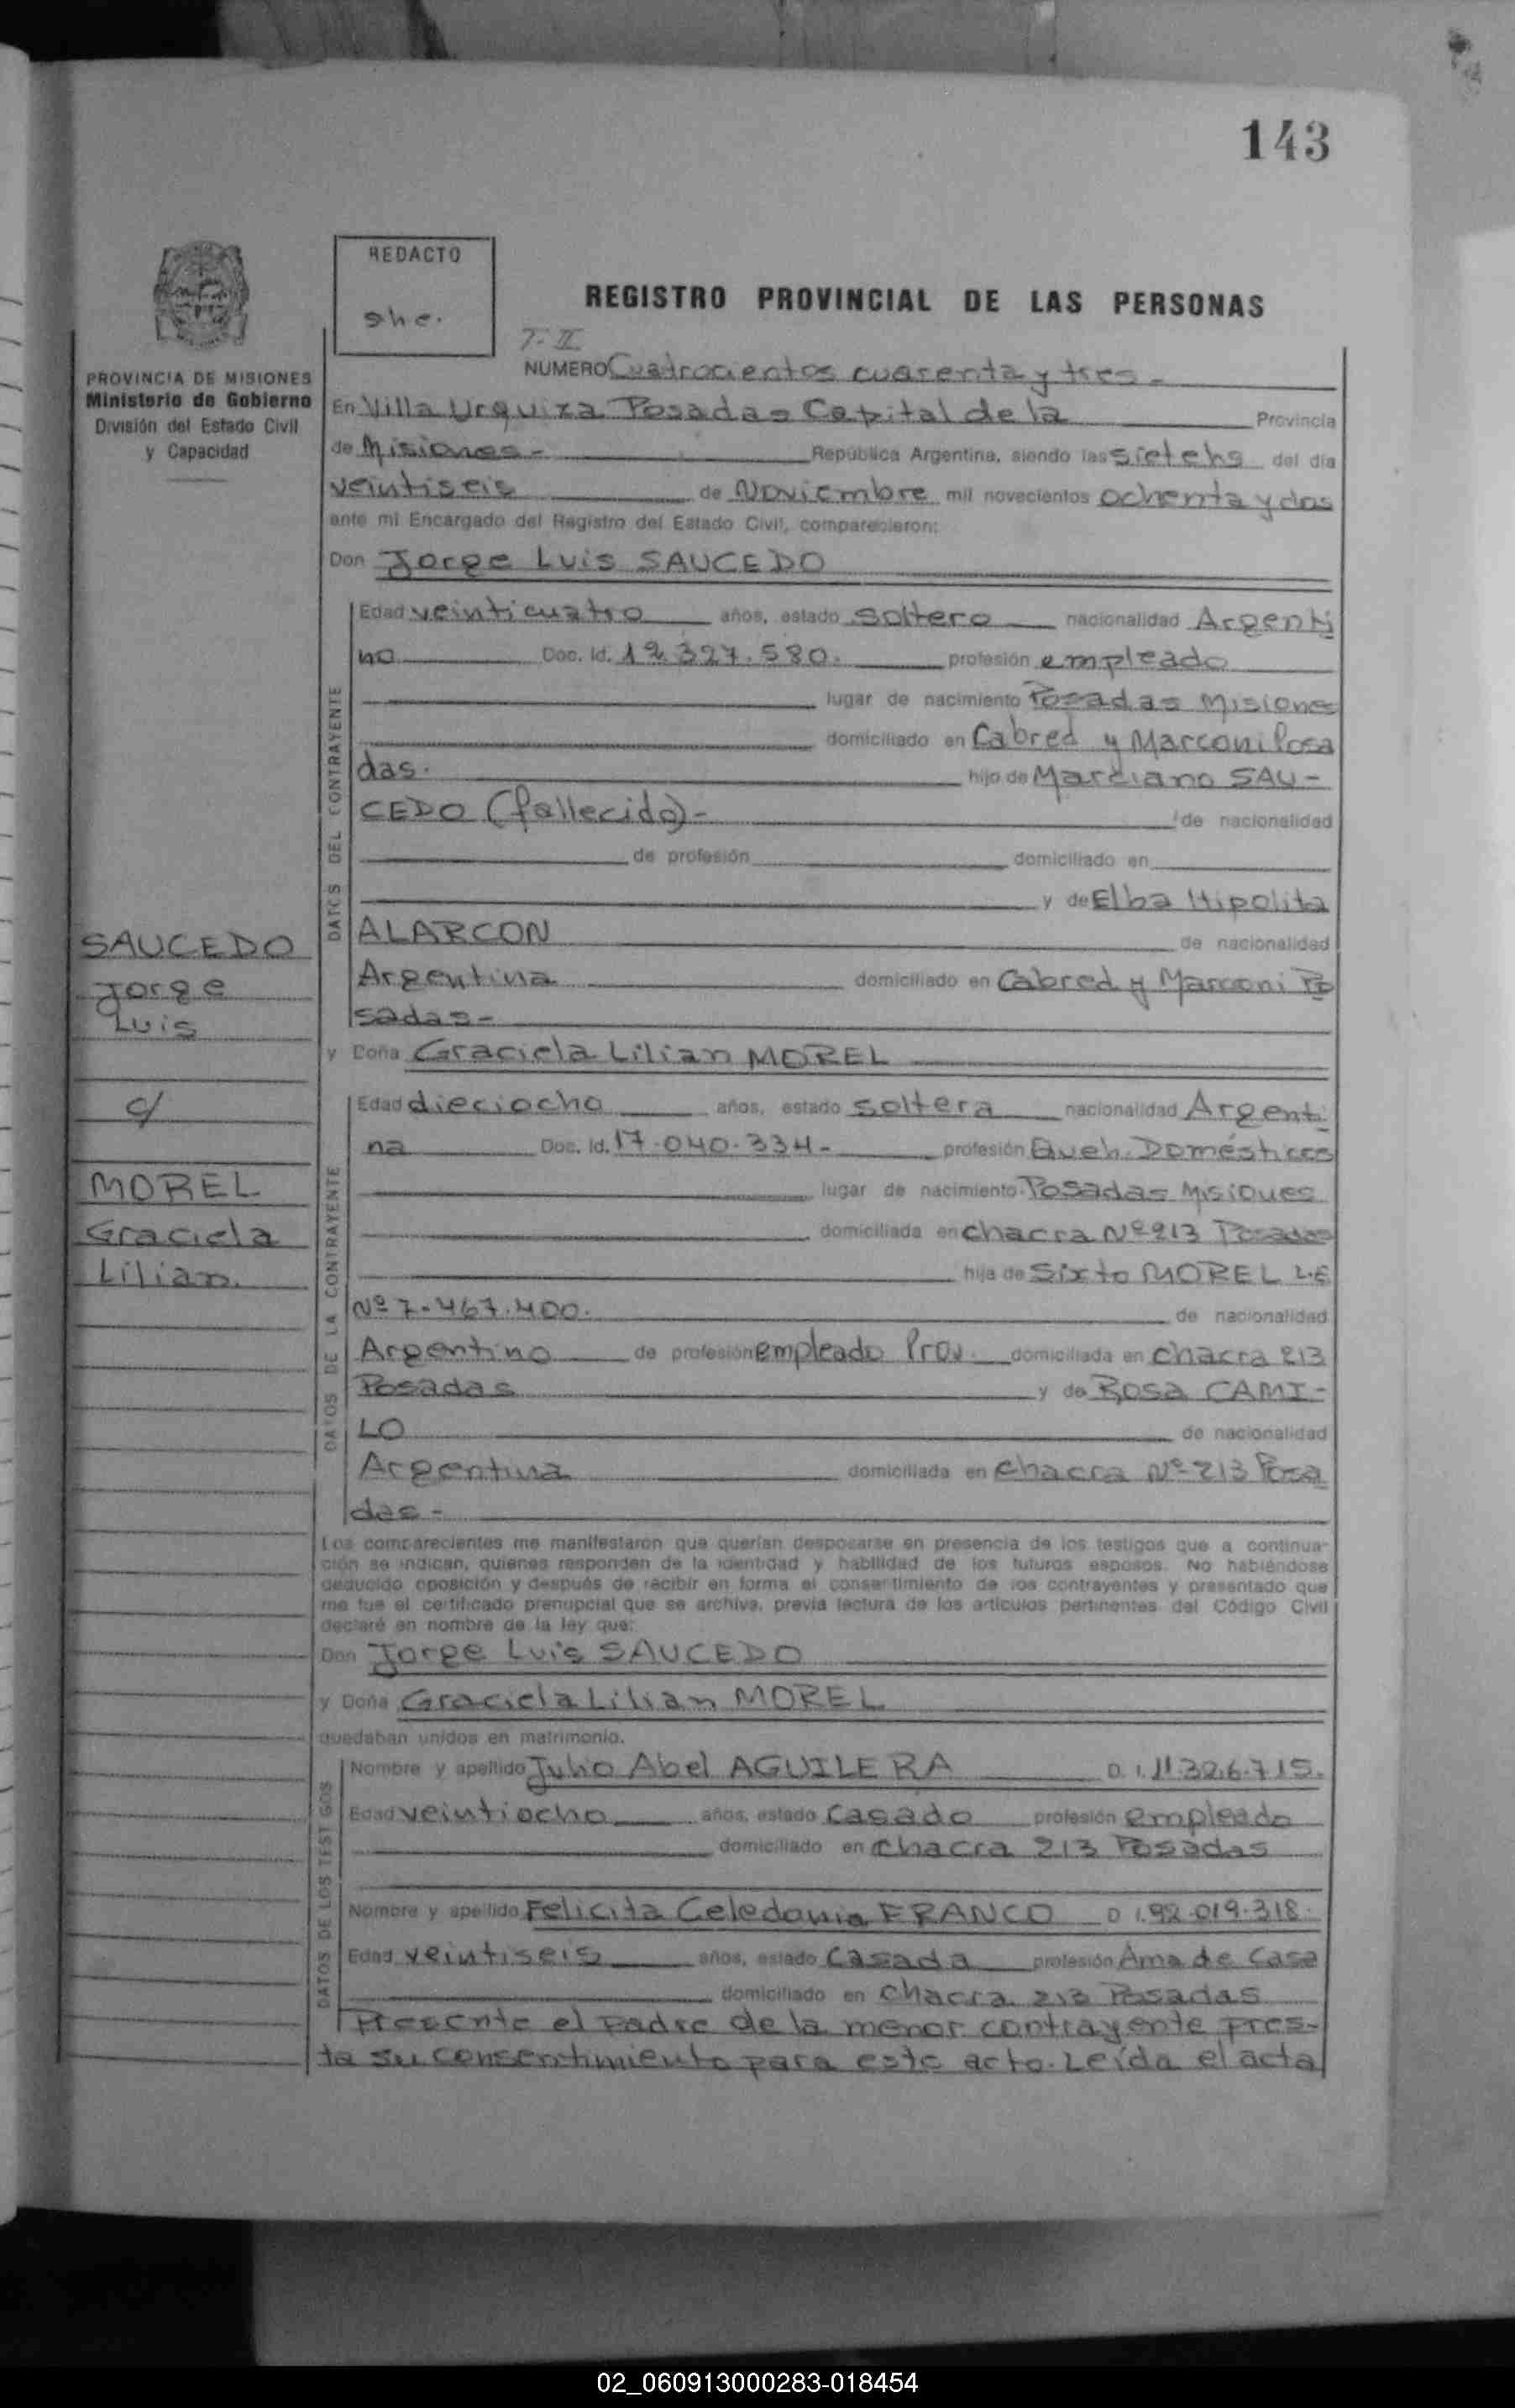 143
REDACTO
she.
REGISTRO PROVINCIAL DE LAS PERSONAS
PROVINCIA DE MISIONES
Ministerio de Gobierno
División del Estado Civil
y Capacidad
T. II
NUMERO Cuatrocientos cuarenta y tres -
En Villa Urquiza Posadas Capital de la Provincia
de Misiones - República Argentina, siendo las siete hs del día
veintiseis de Noviembre mil novecientos ochenta y dos
ante mi Encargado del Registro del Estado Civil, comparecieron:
Don Jorge Luis SAUCEDO
DATOS DEL CONTRAYENTE
Edad veinticuatro años, estado soltero nacionalidad Argenti
no Doc. Id. 12.327.580. profesión empleado
lugar de nacimiento Posadas Misiones
domiciliado en Cabred y Marconi Posa
das. hijo de Marciano SAU-
CEDO (fallecido)- de nacionalidad
de profesión domiciliado en
y de Elba Hipolita
ALARCON de nacionalidad
Argentina domiciliado en Cabred y Marconi Po
sadas-
SAUCEDO
Jorge
Luis
c/
MOREL
Graciela
Lilian.
y Doña Graciela Lilian MOREL
DATOS DE LA CONTRAYENTE
Edad dieciocho años, estado soltera nacionalidad Argenti
na Doc. Id. 17.040.334- profesión Queh. Domésticos
lugar de nacimiento Posadas Misiones
domiciliada en chacra Nº 213 Posadas
hija de Sixto MOREL L.E
Nº 7.467.400. de nacionalidad
Argentino de profesión empleado Prov. domiciliada en chacra 213
Posadas y de Rosa CAMI-
LO de nacionalidad
Argentina domiciliada en chacra Nº 213 Posa
das -
Los comparecientes me manifestaron que querían desposarse en presencia de los testigos que a continua-
ción se indican, quienes responden de la identidad y habilidad de los futuros esposos. No habiéndose
deducido oposición y después de recibir en forma el consentimiento de los contrayentes y presentado que
me fue el certificado prenupcial que se archiva, previa lectura de los artículos pertinentes del Código Civil
declaré en nombre de la ley que:
Don Jorge Luis SAUCEDO
y Doña Graciela Lilian MOREL
quedaban unidos en matrimonio.
DATOS DE LOS TESTIGOS
Nombre y apellido Julio Abel AGUILERA D. I. 11.326.715.
Edad veintiocho años, estado casado profesión empleado
domiciliado en chacra 213 Posadas
Nombre y apellido Felicita Celedonia FRANCO D I. 92.019.318.
Edad veintiseis años, estado casada profesión Ama de Casa
domiciliado en chacra 213 Posadas
Presente el padre de la menor contrayente pres-
ta su consentimiento para este acto. Leída el acta
02_060913000283-018454